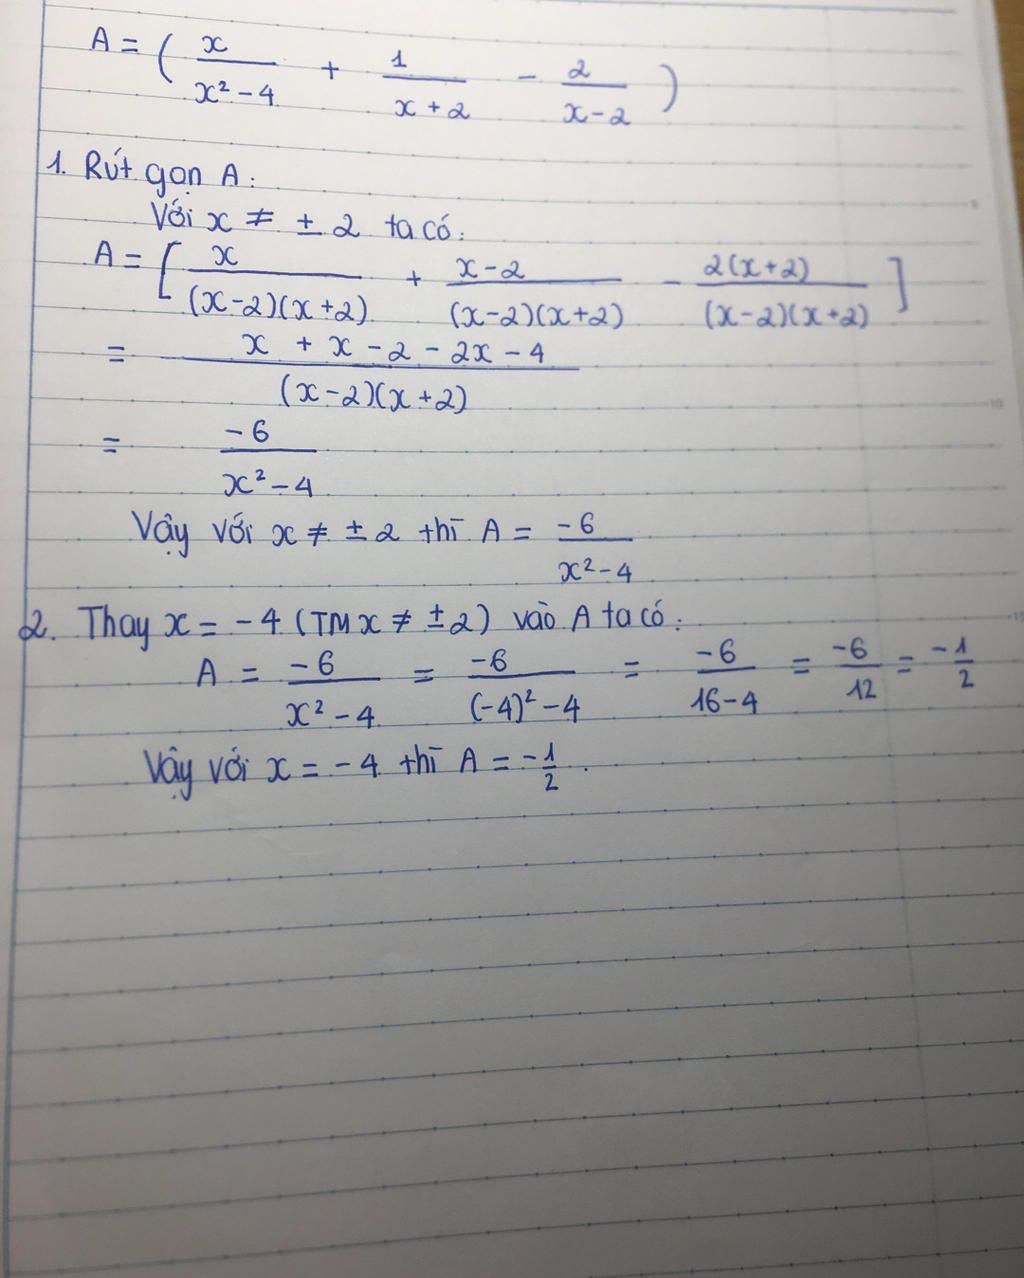 A = ( x/(x² - 4) + 1/(x + 2) - 2/(x - 2) )
1. Rút gọn A:
Với x ≠ ± 2 ta có:
A = [ x/((x-2)(x+2)) + (x-2)/((x-2)(x+2)) - 2(x+2)/((x-2)(x+2)) ]
= (x + x - 2 - 2x - 4)/((x-2)(x+2))
= -6/(x² - 4)
Vậy với x ≠ ± 2 thì A = -6/(x² - 4)
2. Thay x = -4 (TM x ≠ ± 2) vào A ta có:
A = -6/(x² - 4) = -6/((-4)² - 4) = -6/(16 - 4) = -6/12 = -1/2
Vậy với x = -4 thì A = -1/2.